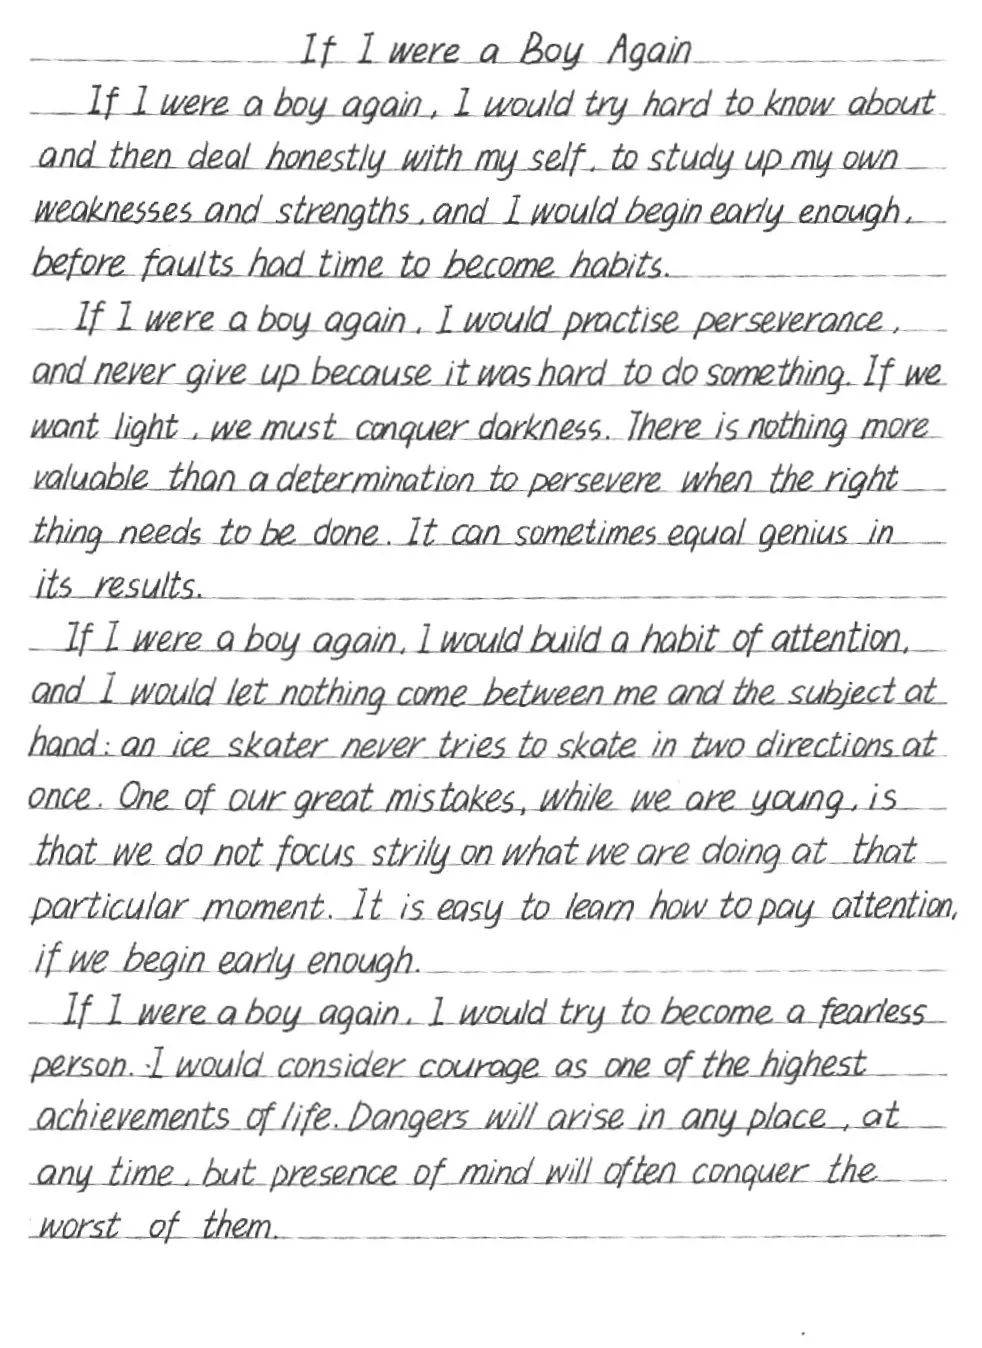 If I were a Boy Again
If I were a boy again, I would try hard to know about
and then deal honestly with my self, to study up my own
weaknesses and strengths, and I would begin early enough,
before faults had time to become habits.
If I were a boy again, I would practise perseverance,
and never give up because it was hard to do something. If we
want light, we must conquer darkness. There is nothing more
valuable than a determination to persevere when the right
thing needs to be done. It can sometimes equal genius in
its results.
If I were a boy again, I would build a habit of attention,
and I would let nothing come between me and the subject at
hand: an ice skater never tries to skate in two directions at
once. One of our great mistakes, while we are young, is
that we do not focus strily on what we are doing at that
particular moment. It is easy to learn how to pay attention,
if we begin early enough.
If I were a boy again, I would try to become a fearless
person. I would consider courage as one of the highest
achievements of life. Dangers will arise in any place, at
any time, but presence of mind will often conquer the
worst of them.